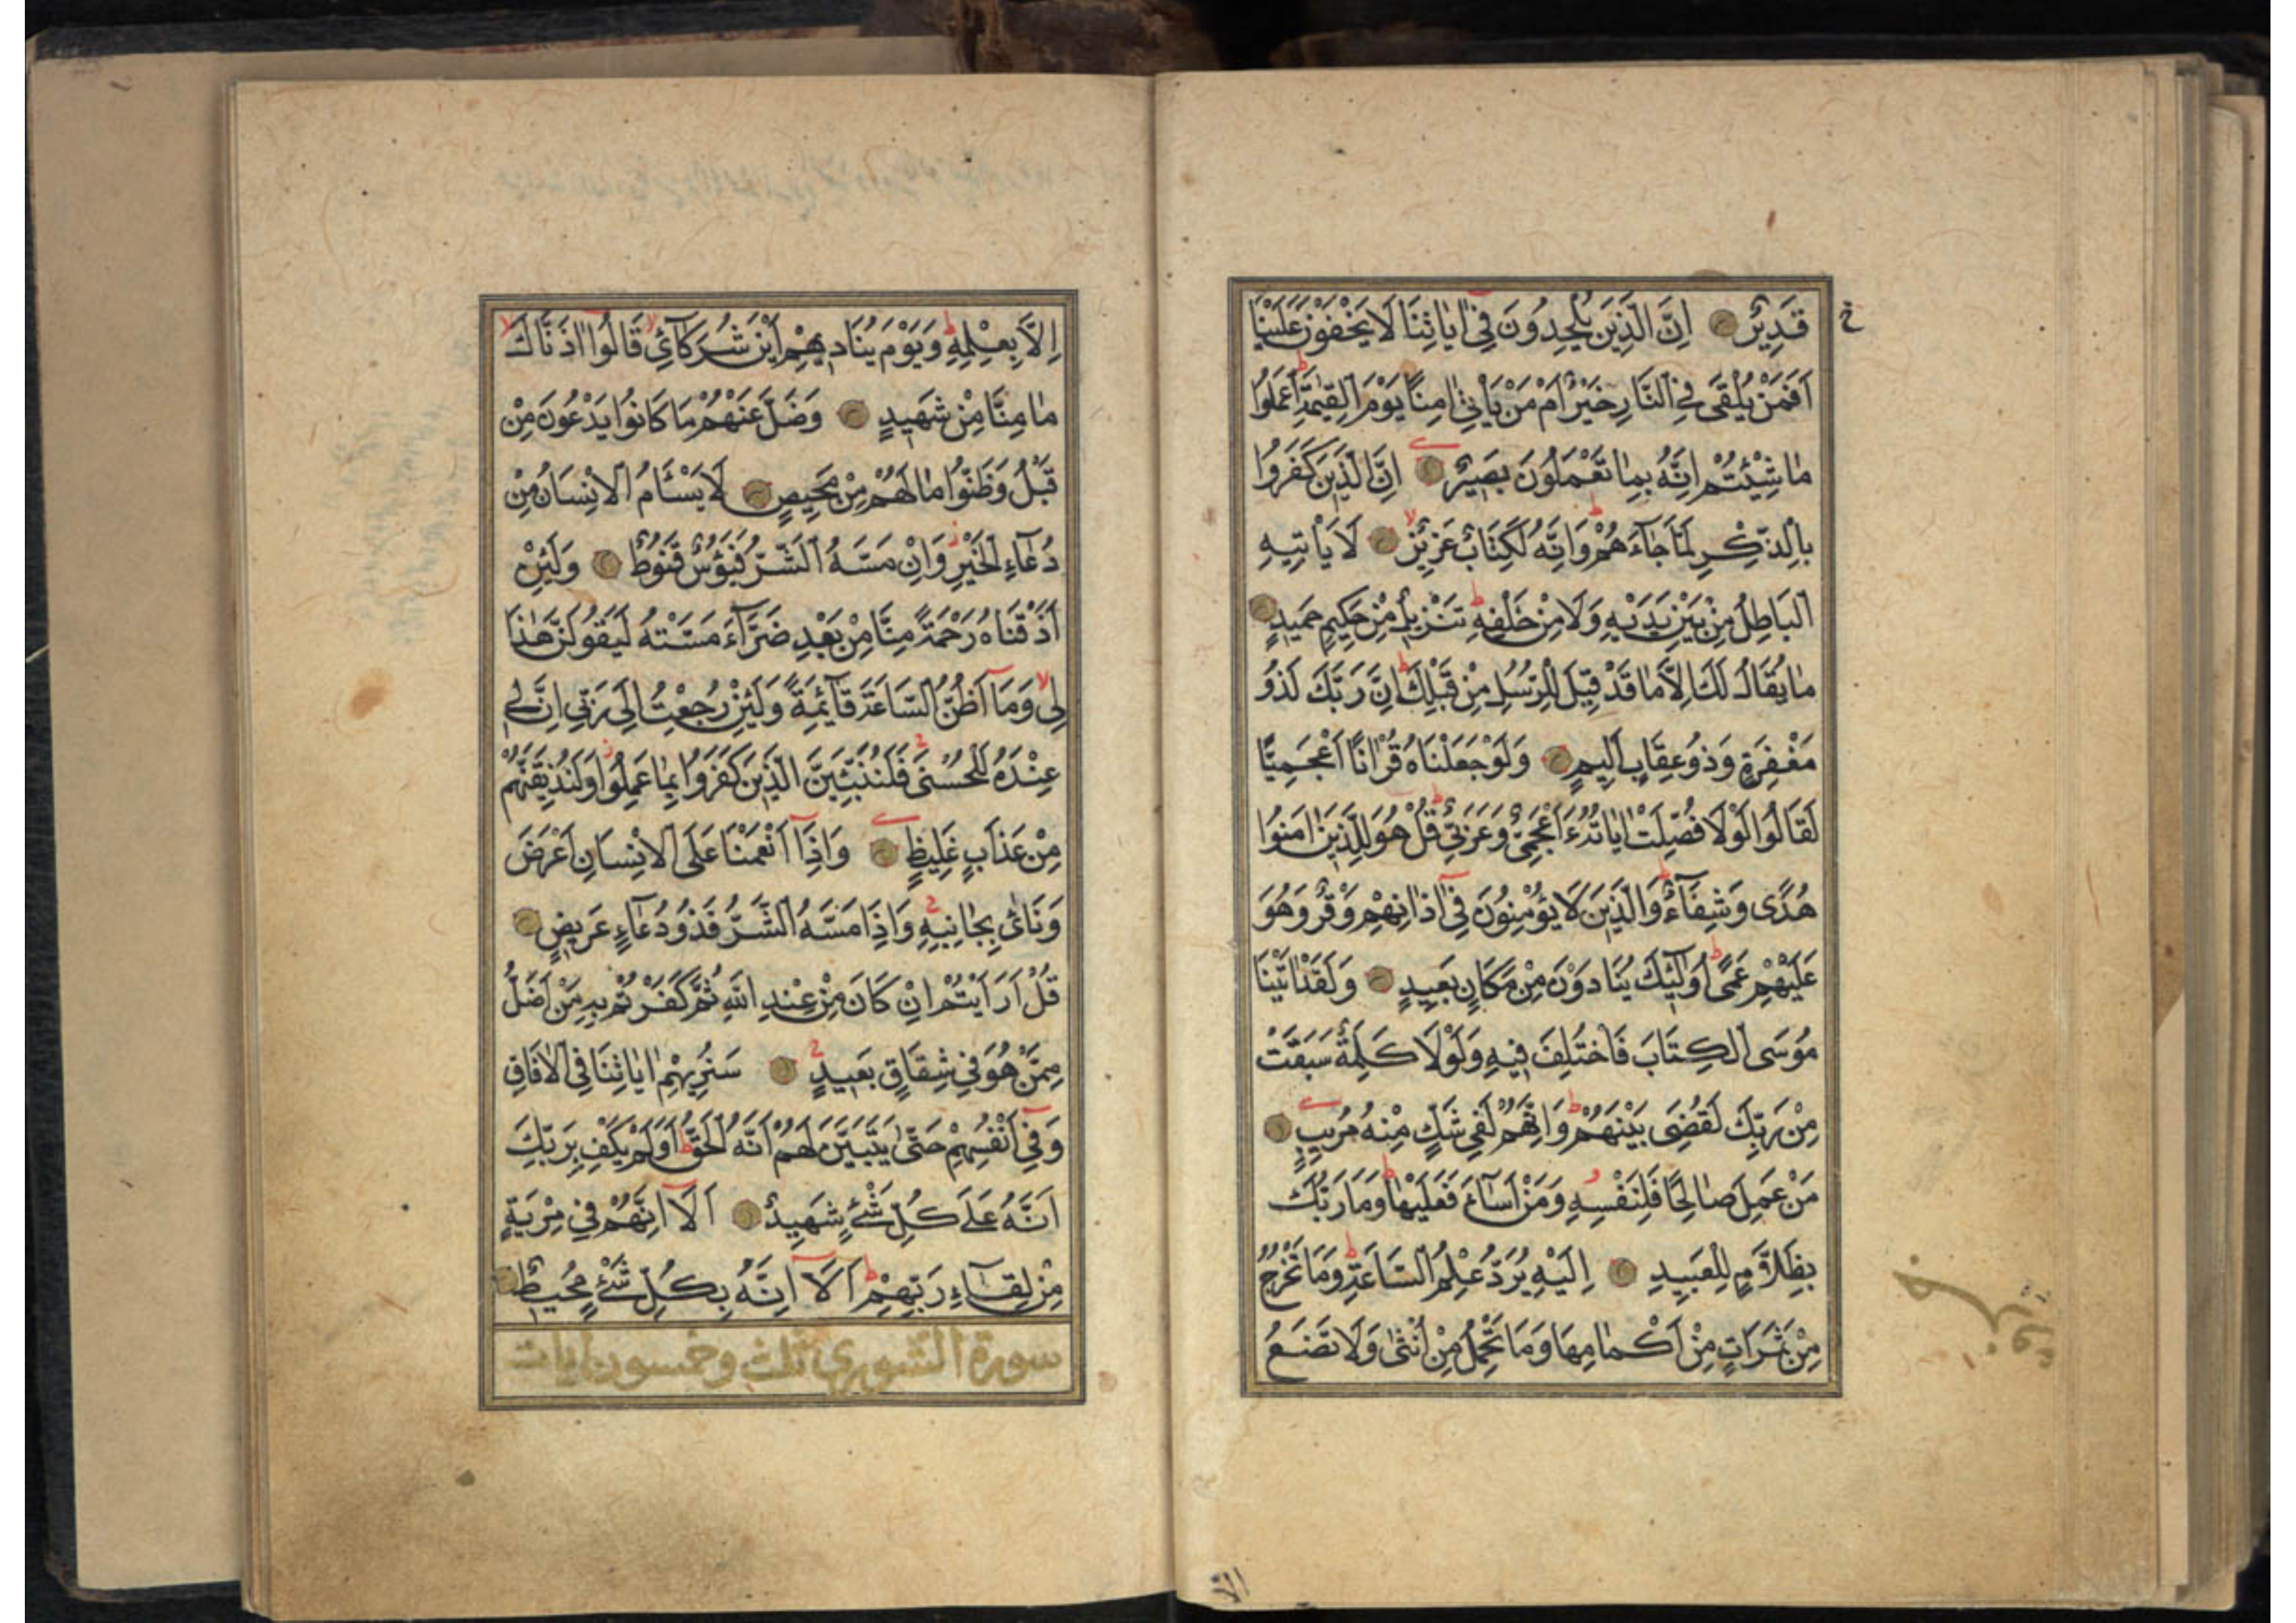 قَدِيرٌ اِنَّ الَّذِينَ يُلْحِدُونَ فِى اٰيَاتِنَا لَا يَخْفَوْنَ عَلَيْنَا
اَفَمَنْ يُلْقٰى فِى النَّارِ خَيْرٌ اَمْ مَنْ يَاْتِى اٰمِنًا يَوْمَ الْقِيٰمَةِ اِعْمَلُوا
مَا شِئْتُمْ اِنَّهُ بِمَا تَعْمَلُونَ بَصِيرٌ اِنَّ الَّذِينَ كَفَرُوا
بِالذِّكْرِ لَمَّا جَاءَهُمْ وَاِنَّهُ لَكِتَابٌ عَزِيزٌ لَا يَاْتِيهِ
الْبَاطِلُ مِنْ بَيْنِ يَدَيْهِ وَلَا مِنْ خَلْفِهِ تَنْزِيلٌ مِنْ حَكِيمٍ حَمِيدٍ
مَا يُقَالُ لَكَ اِلَّا مَا قَدْ قِيلَ لِلرُّسُلِ مِنْ قَبْلِكَ اِنَّ رَبَّكَ لَذُو
مَغْفِرَةٍ وَذُو عِقَابٍ اَلِيمٍ وَلَوْ جَعَلْنَاهُ قُرْاٰنًا اَعْجَمِيًّا
لَقَالُوا لَوْلَا فُصِّلَتْ اٰيَاتُهُ ءَاَعْجَمِىٌّ وَعَرَبِىٌّ قُلْ هُوَ لِلَّذِينَ اٰمَنُوا
هُدًى وَشِفَآءٌ وَالَّذِينَ لَا يُؤْمِنُونَ فِى اٰذَانِهِمْ وَقْرٌ وَهُوَ
عَلَيْهِمْ عَمًى اُولٰٓئِكَ يُنَادَوْنَ مِنْ مَكَانٍ بَعِيدٍ وَلَقَدْ اٰتَيْنَا
مُوسَى الْكِتَابَ فَاخْتُلِفَ فِيهِ وَلَوْلَا كَلِمَةٌ سَبَقَتْ
مِنْ رَبِّكَ لَقُضِىَ بَيْنَهُمْ وَاِنَّهُمْ لَفِى شَكٍّ مِنْهُ مُرِيبٍ
مَنْ عَمِلَ صَالِحًا فَلِنَفْسِهِ وَمَنْ اَسَآءَ فَعَلَيْهَا وَمَا رَبُّكَ
بِظَلَّامٍ لِلْعَبِيدِ اِلَيْهِ يُرَدُّ عِلْمُ السَّاعَةِ وَمَا تَخْرُجُ
مِنْ ثَمَرَاتٍ مِنْ اَكْمَامِهَا وَمَا تَحْمِلُ مِنْ اُنْثٰى وَلَا تَضَعُ
اِلَّا
اِلَّا بِعِلْمِهِ وَيَوْمَ يُنَادِيهِمْ اَيْنَ شُرَكَآئِى قَالُوا اٰذَنَّاكَ
مَا مِنَّا مِنْ شَهِيدٍ وَضَلَّ عَنْهُمْ مَا كَانُوا يَدْعُونَ مِنْ
قَبْلُ وَظَنُّوا مَا لَهُمْ مِنْ مَحِيصٍ لَا يَسْئَمُ الْاِنْسَانُ مِنْ
دُعَآءِ الْخَيْرِ وَاِنْ مَسَّهُ الشَّرُّ فَيَؤُسٌ قَنُوطٌ وَلَئِنْ
اَذَقْنَاهُ رَحْمَةً مِنَّا مِنْ بَعْدِ ضَرَّآءَ مَسَّتْهُ لَيَقُولَنَّ هٰذَا
لِى وَمَآ اَظُنُّ السَّاعَةَ قَآئِمَةً وَلَئِنْ رُجِعْتُ اِلٰى رَبِّى اِنَّ لِى
عِنْدَهُ لَلْحُسْنٰى فَلَنُنَبِّئَنَّ الَّذِينَ كَفَرُوا بِمَا عَمِلُوا وَلَنُذِيقَنَّهُمْ
مِنْ عَذَابٍ غَلِيظٍ وَاِذَآ اَنْعَمْنَا عَلَى الْاِنْسَانِ اَعْرَضَ
وَنَاٰى بِجَانِبِهِ وَاِذَا مَسَّهُ الشَّرُّ فَذُو دُعَآءٍ عَرِيضٍ
قُلْ اَرَاَيْتُمْ اِنْ كَانَ مِنْ عِنْدِ اللهِ ثُمَّ كَفَرْتُمْ بِهِ مَنْ اَضَلُّ
مِمَّنْ هُوَ فِى شِقَاقٍ بَعِيدٍ سَنُرِيهِمْ اٰيَاتِنَا فِى الْاٰفَاقِ
وَفِى اَنْفُسِهِمْ حَتّٰى يَتَبَيَّنَ لَهُمْ اَنَّهُ الْحَقُّ اَوَلَمْ يَكْفِ بِرَبِّكَ
اَنَّهُ عَلٰى كُلِّ شَىْءٍ شَهِيدٌ اَلَآ اِنَّهُمْ فِى مِرْيَةٍ
مِنْ لِقَآءِ رَبِّهِمْ اَلَآ اِنَّهُ بِكُلِّ شَىْءٍ مُحِيطٌ
سورة الشورى ثلث وخمسون ايات